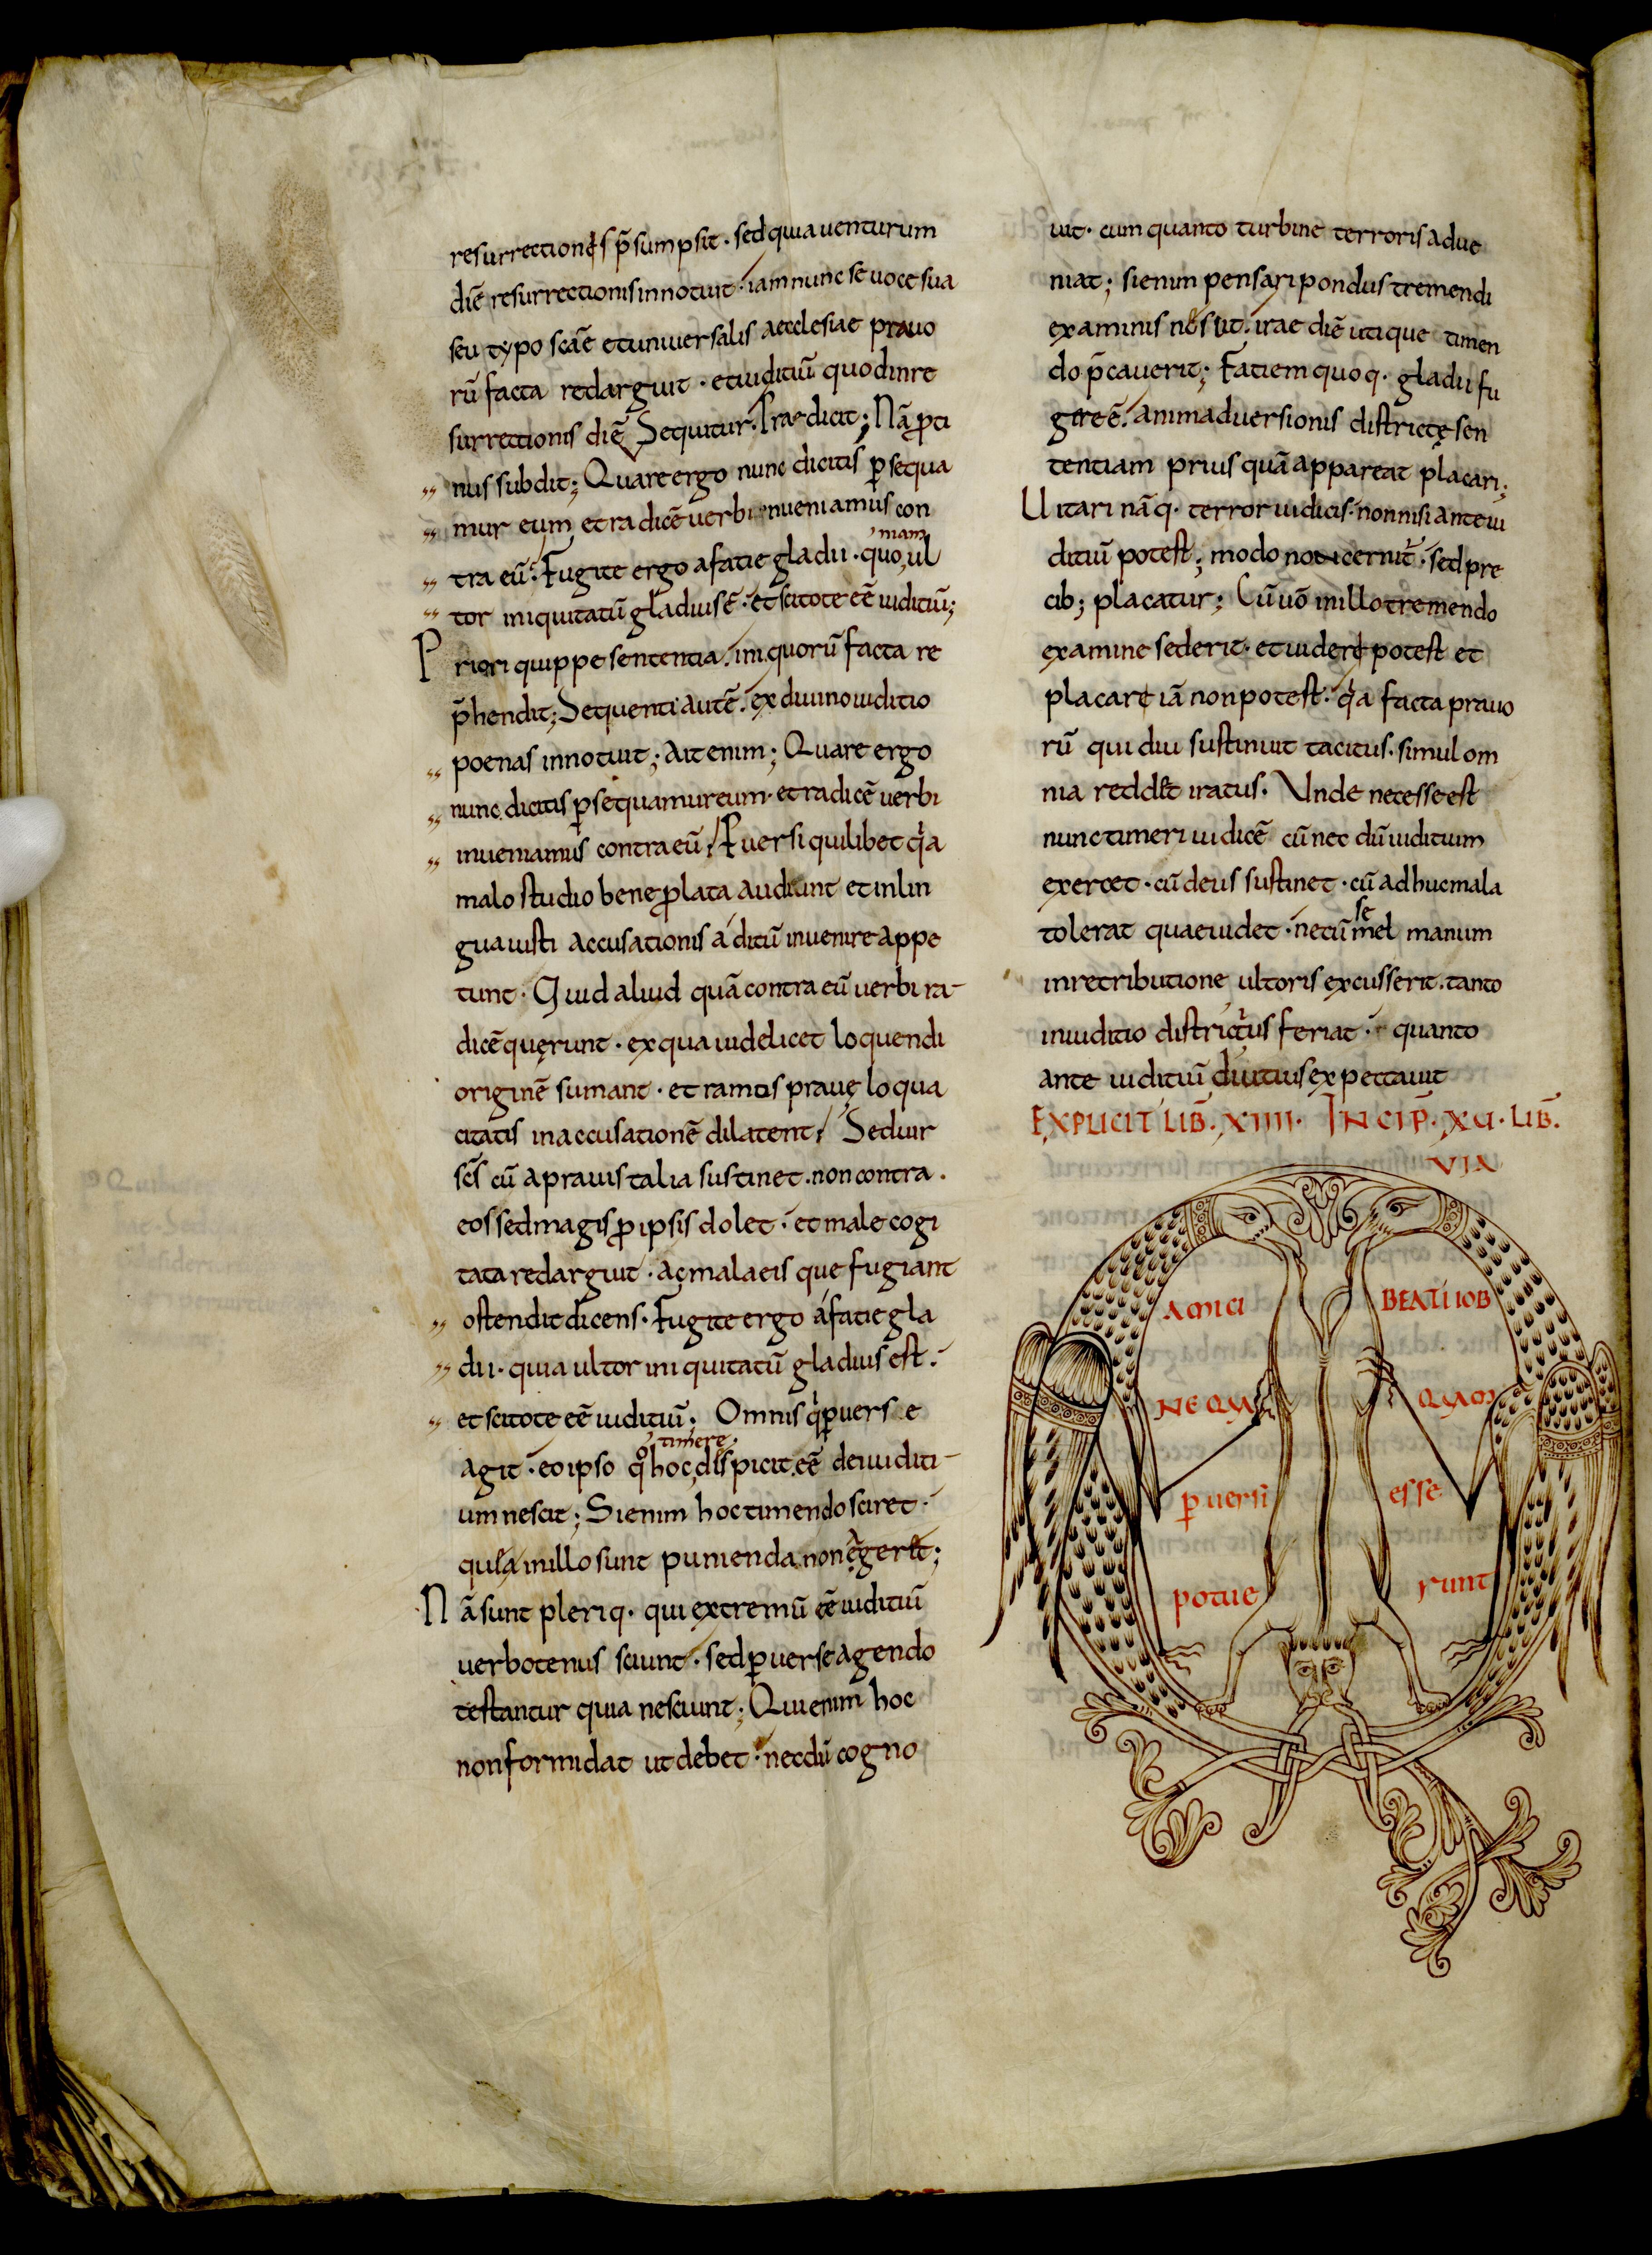 resurrectionis p̄sumpsit · sed quia uenturum
diē resurrectionis innotuit · iam nunc se uoce sua
seu typo scāe et uniuersalis aecclesiae prauo
rū facta redarguit · et iuditiū quod in re
surrectionis diē Sequitur · Praedicit; Nā ꝓti
nus subdit; Quare ergo nunc dicitis ꝑsequa
mur eum et radicē uerbi inueniamus con
tra eū · Fugite ergo a facie gladii · quo niam ul
tor iniquitatū gladius ē · et scitote eē iuditiū;
Priori quippe sententia · iniquorū facta re
p̄hendit; Sequenti autē · ex diuino iuditio
poenas innotuit; Ait enim; Quare ergo
nunc dicitis ꝑsequamur eum · et radicē uerbi
inueniamus contra eū; Puersi quilibet qa
malo studio bene ꝓlata audiunt et in lin
gua iusti accusationis aditū inuenire appe
tunt · Quid aliud quā contra eū uerbi ra-
dicē quęrunt · ex qua uidelicet loquendi
originē sumant · et ramos prauę loqua
citatis in accusationē dilatent; Sed uir
scs̄ cū a prauis talia sustinet · non contra ·
eos sed magis ꝓ ipsis dolet · et male cogi
tata redarguit · ac mala eis que fugiant
ostendit dicens · Fugite ergo a facie gla
dii · quia ultor iniquitatū gladius est ·
et scitote eē iuditiū · Omnis q ꝑuerse
agit · eo ipso qo hoc timere dispicit · eē dei iuditi-
um nescit; Si enim hoc timendo sciret ·
quia in illo sunt punienda non ageret;
Nā sunt pleriq · qui extremū eē iuditiū
uerbotenus sciunt · sed ꝑuerse agendo
testantur quia nesciunt; Qui enim hoc
non formidat ut debet · necdū cogno
uit · cum quanto turbine terroris adue
niat; si enim pensari pondus tremendi
examinis nosset · irae diē utique timen
do p̄cauerit; Faciem quoq · gladii fu
gere ē · animaduersionis districtę sen
tentiam prius quā appareat placari;
Uitari nāq · terror iudicis · non nisi ante iu
ditiū potest; modo non cernit · sed pre
cib; placatur; Cū uō in illo tremendo
examine sederit · et uideri potest et
placare iā non potest · qa facta prauo
rū qui diu sustinuit tacitus · simul om
nia reddet iratus · Unde necesse est
nunc timeri iudicē cū nec dū iuditium
exercet · cū deus sustinet · cū adhuc mala
tolerat quae uidet · ne cū semel manum
in retributione ultoris excusserit · tanto
in iuditio districtius feriat · quanto
ante iuditiū diutius expectauit
EXPLICIT LIB̄. XIIII · INCIP̄. XU · LIB̄.
QUIA
AMICI BEATI IOB
NEQUA QUAM
ꝑuersi esse
potue runt